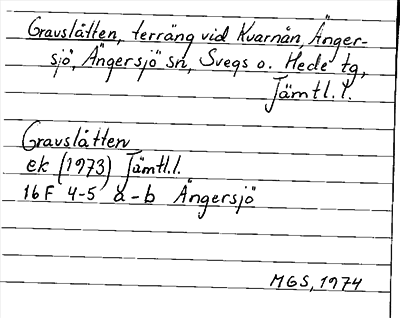 Gravslåtten, terräng vid Kvarnån, Änger-
sjö, Ängersjö sn, Svegs o. Hede tg,
Jämtl. l.
Gravslåtten
ek (1973) Jämtl.l.
16 F 4-5 a-b Ängersjö
MGS, 1974